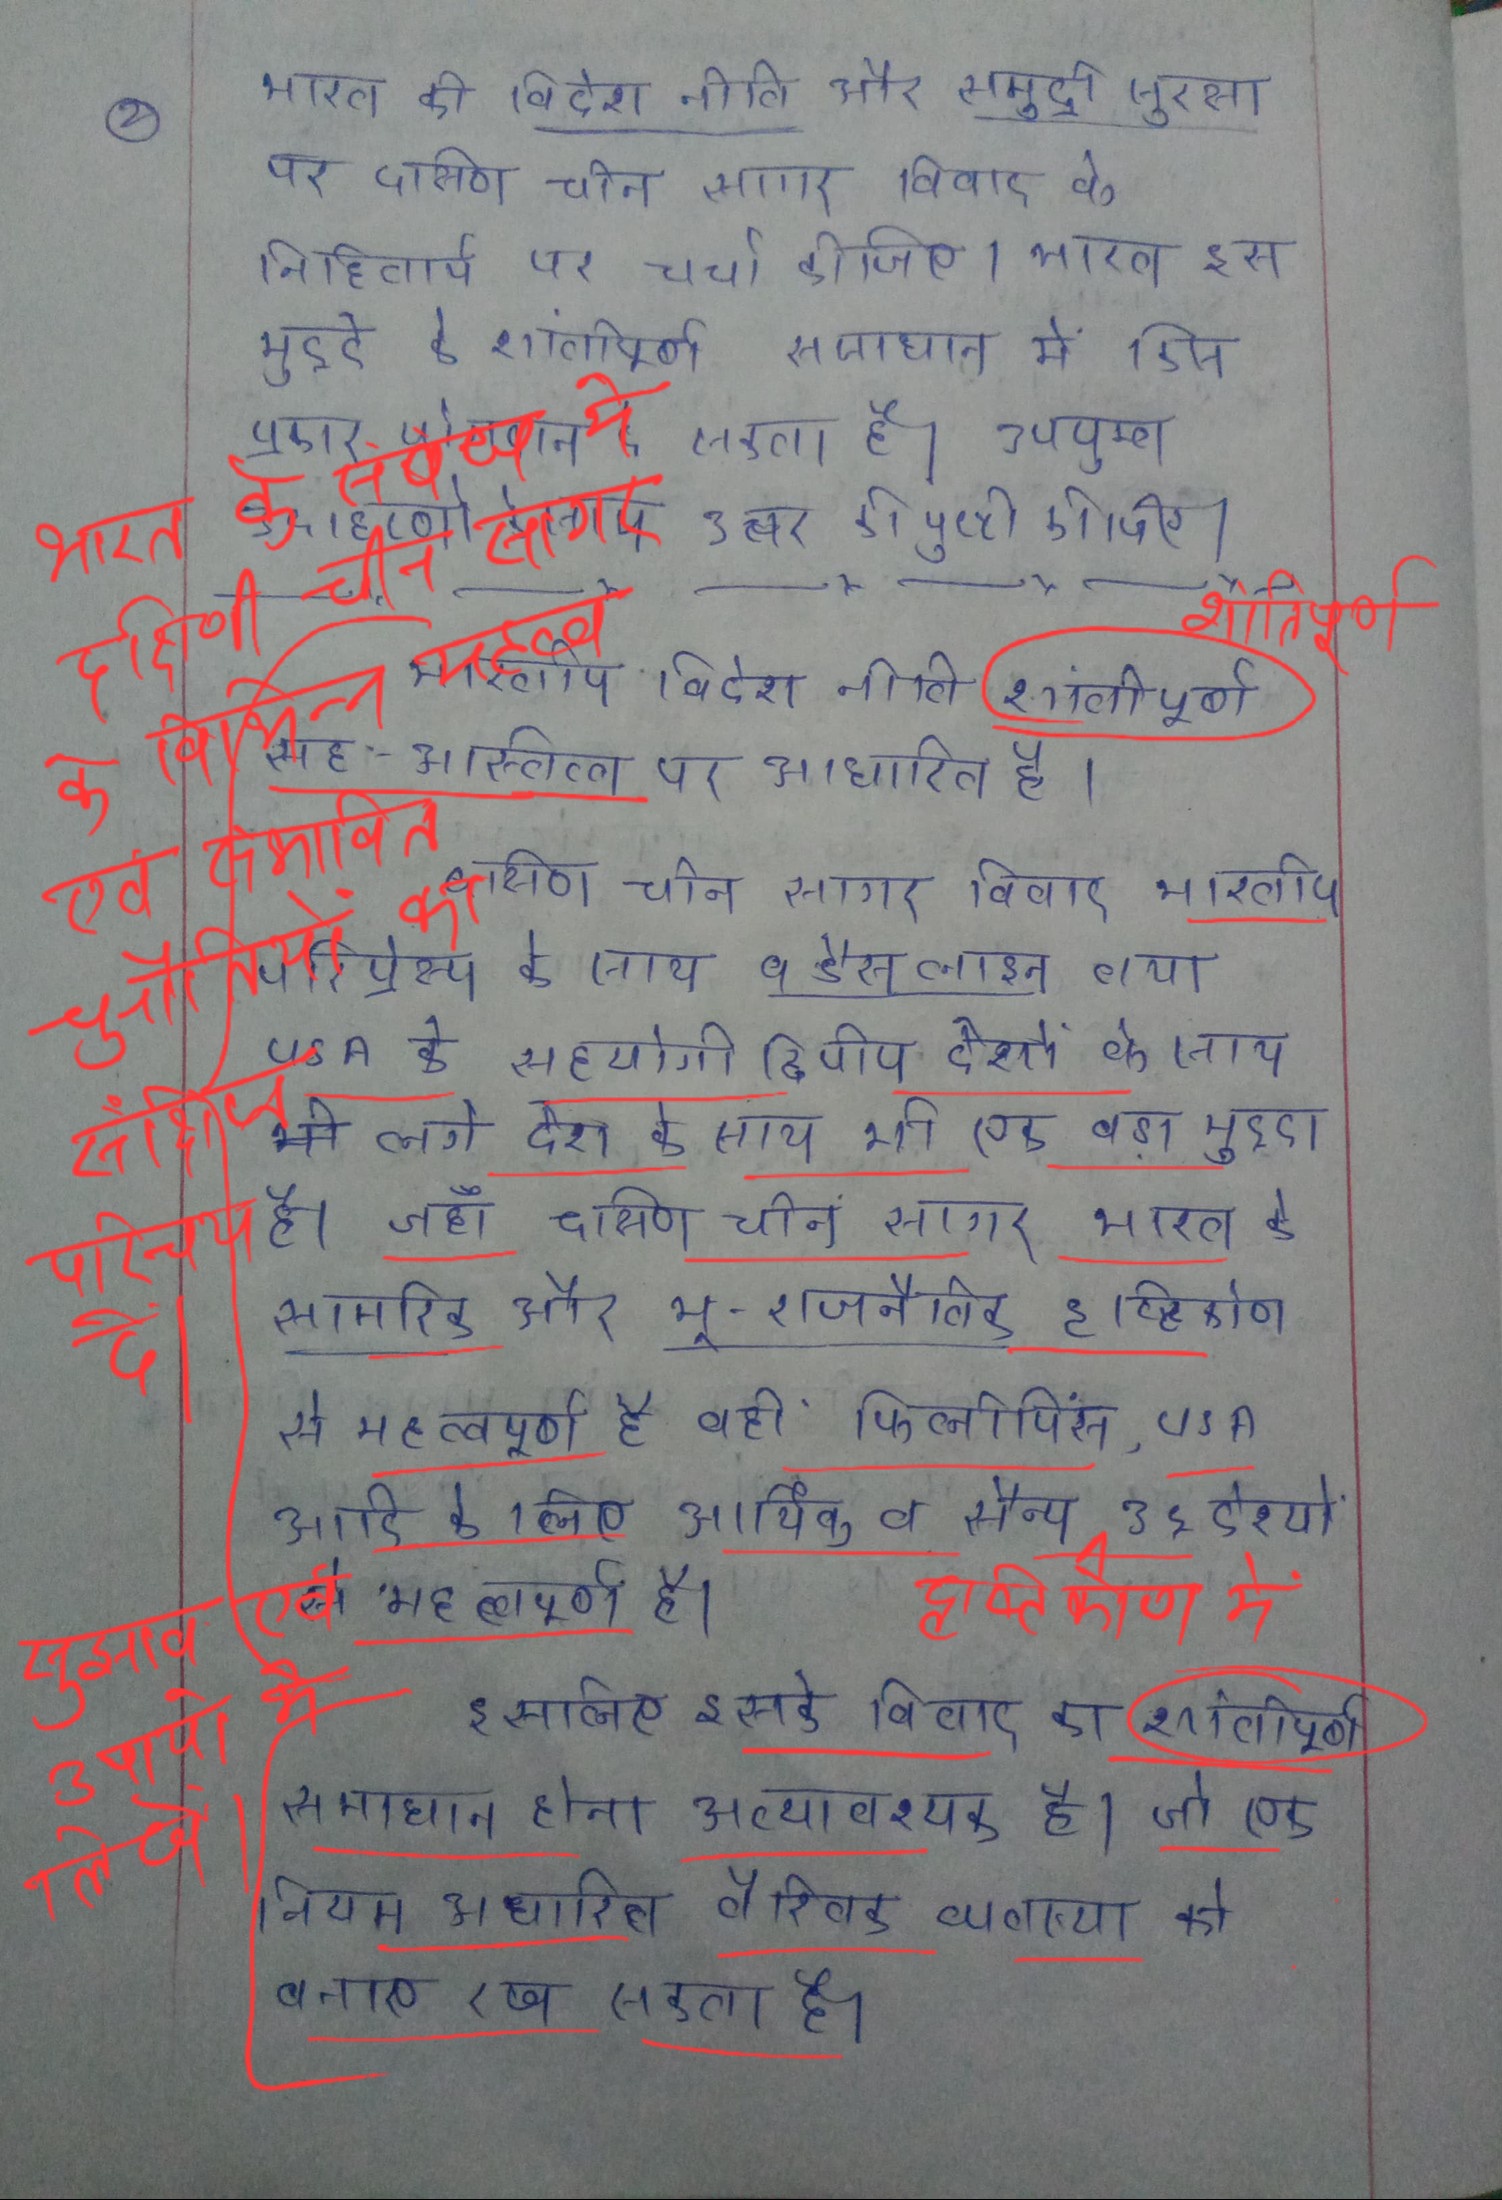 ②
भारत की विदेश नीति और समुद्री सुरक्षा
पर दक्षिण चीन सागर विवाद के
निहितार्थ पर चर्चा कीजिए। भारत इस
मुद्दे के शांतीपूर्ण समाधान में किस
प्रकार योगदान दे सकता है। उपयुक्त
उदाहरणो के साथ उत्तर की पुष्टी कीजिए।
भारतीय विदेश नीति शांतीपूर्ण
सह-अस्तित्व पर आधारित है।
दक्षिण चीन सागर विवाद भारतीय
परिप्रेक्ष्य के साथ 9 डैस लाइन तथा
USA के सहयोगी द्विपीय देशों के साथ
भी लगे देश के साथ भी एक बड़ा मुद्दा
है। जहाँ दक्षिण चीन सागर भारत के
सामरिक और भू-राजनैतिक दृष्टिकोण
से महत्वपूर्ण है वहीं फिलीपिंस, USA
आदि के लिए आर्थिक व सैन्य उद्देश्यों
से महत्वपूर्ण है।
इसलिए इसके विवाद का शांतीपूर्ण
समाधान होना अत्यावश्यक है। जो एक
नियम अधारित वैश्विक व्यवस्था को
बनाए रख सकता है।
भारत के संबंध में
दक्षिणी चीन सागर
के विभिन्न महत्व
एवं संभावित
चुनौतियों का
संक्षिप्त
परिचय
दें।
शांतिपूर्ण
दृष्टिकोण में
सुझाव एवं
उपायों में
लिखें।